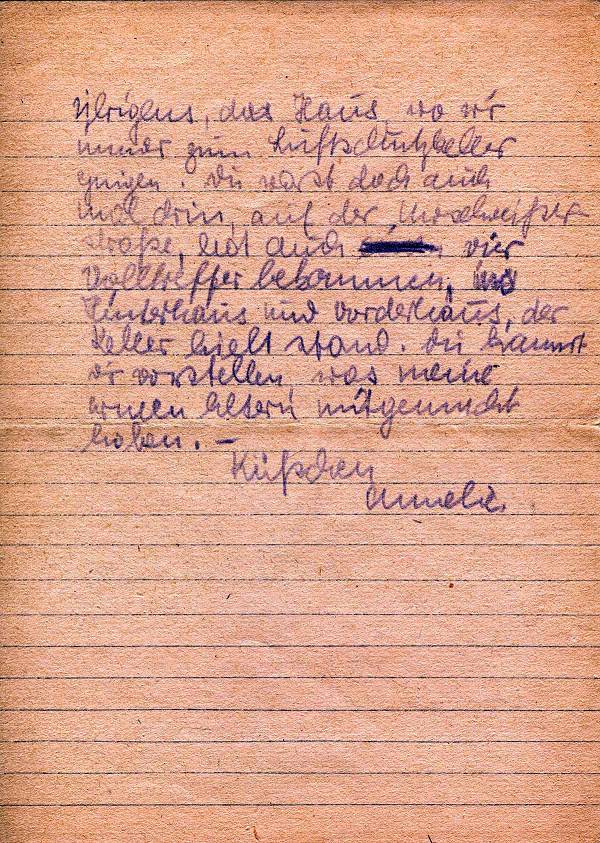 Übrigens, das Haus, wo wir
immer zum Luftschutzkeller
gingen. Du warst doch auch
mal drin, auf der
straße, hat auch vier
Volltreffer bekommen,
Hinterhaus und Vorderhaus, der
Keller hielt stand. Du kannst
dir vorstellen, was meine
armen Eltern mitgemacht
haben. –
Küßchen